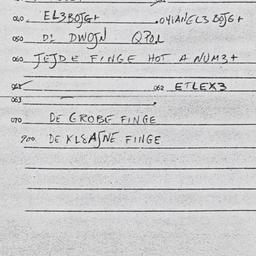 040 EL3BOJG+ .041ANEL3 BOJG+
050 DI DWOJN QPOL
060 JEJDE FINGE HOT A NUM3+
061 062 ETLEX3
063
070 DE GROBE FINGE
900 DE KLEAJNE FINGE